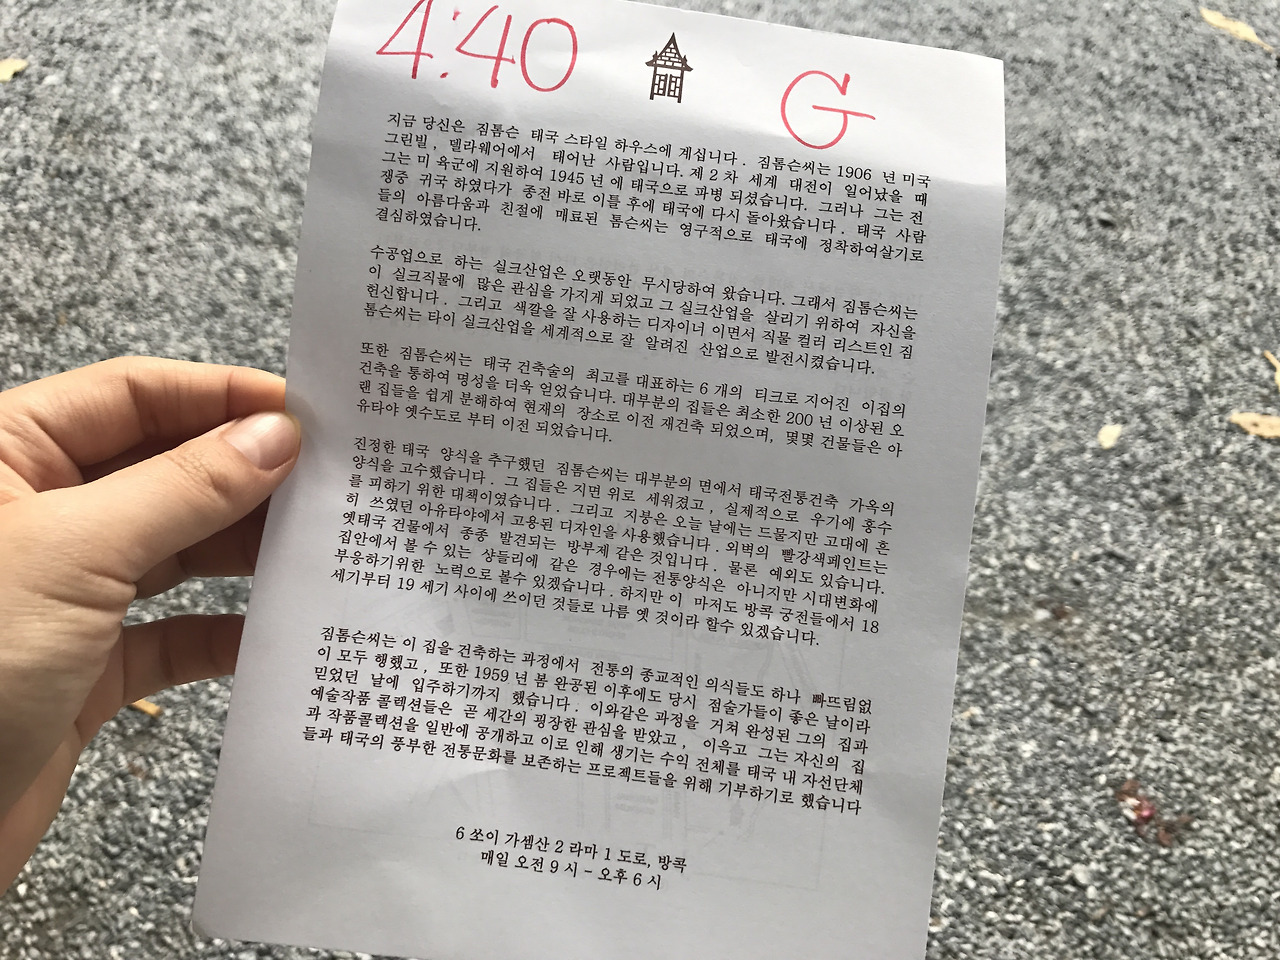 4:40
G
지금 당신은 짐톰슨 태국 스타일 하우스에 계십니다. 짐톰슨씨는 1906 년 미국
그린빌, 델라웨어에서 태어난 사람입니다. 제 2 차 세계 대전이 일어났을 때
그는 미 육군에 지원하여 1945 년 에 태국으로 파병 되셨습니다. 그러나 그는 전
쟁중 귀국 하였다가 종전 바로 이틀 후에 태국에 다시 돌아왔습니다. 태국 사람
들의 아름다움과 친절에 매료된 톰슨씨는 영구적으로 태국에 정착하여살기로
결심하였습니다.
수공업으로 하는 실크산업은 오랫동안 무시당하여 왔습니다. 그래서 짐톰슨씨는
이 실크직물에 많은 관심을 가지게 되었고 그 실크산업을 살리기 위하여 자신을
헌신합니다. 그리고 색깔을 잘 사용하는 디자이너 이면서 직물 컬러 리스트인 짐
톰슨씨는 타이 실크산업을 세계적으로 잘 알려진 산업으로 발전시켰습니다.
또한 짐톰슨씨는 태국 건축술의 최고를 대표하는 6 개의 티크로 지어진 이집의
건축을 통하여 명성을 더욱 얻었습니다. 대부분의 집들은 최소한 200 년 이상된 오
랜 집들을 쉽게 분해하여 현재의 장소로 이전 재건축 되었으며, 몇몇 건물들은 아
유타야 옛수도로 부터 이전 되었습니다.
진정한 태국 양식을 추구했던 짐톰슨씨는 대부분의 면에서 태국전통건축 가옥의
양식을 고수했습니다. 그 집들은 지면 위로 세워졌고, 실제적으로 우기에 홍수
를 피하기 위한 대책이였습니다. 그리고 지붕은 오늘 날에는 드물지만 고대에 흔
히 쓰였던 아유타야에서 고용된 디자인을 사용했습니다. 외벽의 빨강색페인트는
옛태국 건물에서 종종 발견되는 방부제 같은 것입니다. 물론 예외도 있습니다.
집안에서 볼 수 있는 샹들리에 같은 경우에는 전통양식은 아니지만 시대변화에
부응하기위한 노력으로 볼수 있겠습니다. 하지만 이 마저도 방콕 궁전들에서 18
세기부터 19 세기 사이에 쓰이던 것들로 나름 옛 것이라 할수 있겠습니다.
짐톰슨씨는 이 집을 건축하는 과정에서 전통의 종교적인 의식들도 하나 빠뜨림없
이 모두 행했고, 또한 1959 년 봄 완공된 이후에도 당시 점술가들이 좋은 날이라
믿었던 날에 입주하기까지 했습니다. 이와같은 과정을 거쳐 완성된 그의 집과
예술작품 콜렉션들은 곧 세간의 굉장한 관심을 받았고, 이윽고 그는 자신의 집
과 작품콜렉션을 일반에 공개하고 이로 인해 생기는 수익 전체를 태국 내 자선단체
들과 태국의 풍부한 전통문화를 보존하는 프로젝트들을 위해 기부하기로 했습니다
6 쏘이 가셈산 2 라마 1 도로, 방콕
매일 오전 9 시 - 오후 6 시